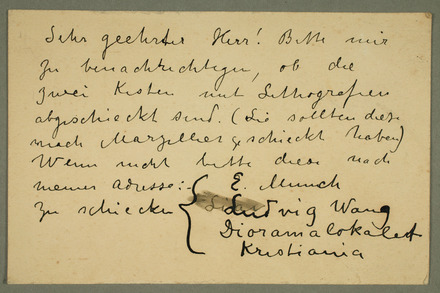 Sehr geehrter Herr! Bitte mir
zu benachrichtigen, ob die
zwei Kisten mit Lithografien
abgeschickt sind. (Sie sollten diese
nach Marzellier geschickt haben)
Wenn nicht bitte diese nach
meiner adresse: E. Munch
zu schicken Ludvig Wang
Dioramalokalet
Kristiania